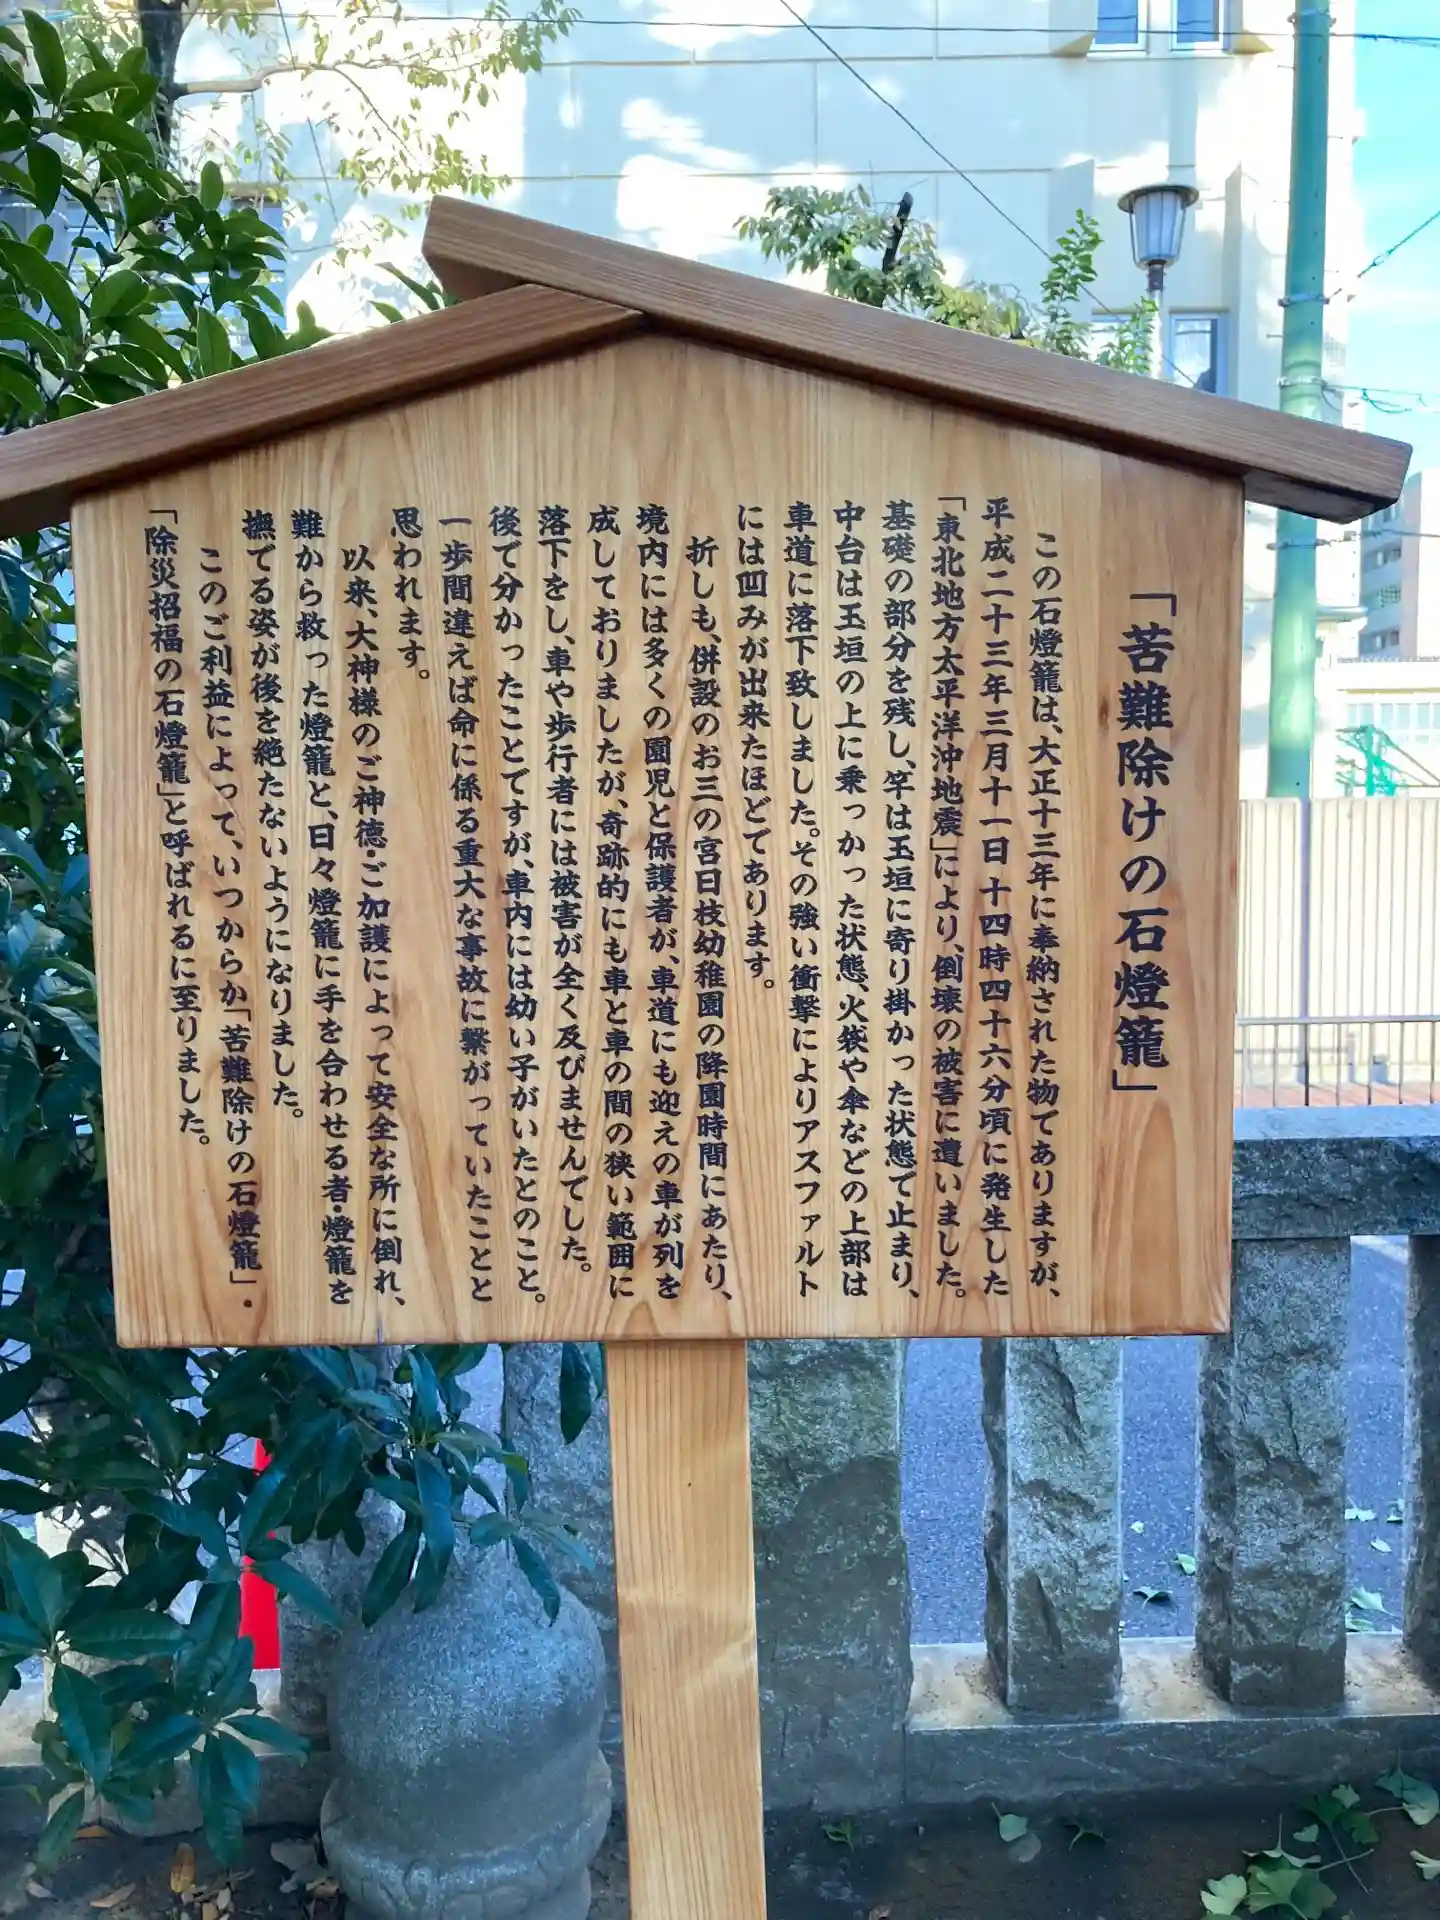 「苦難除けの石燈籠」
この石燈籠は、大正十三年に奉納された物でありますが、
平成二十三年三月十一日十四時四十六分頃に発生した
「東北地方太平洋沖地震」により、倒壊の被害に遭いました。
基礎の部分を残し、竿は玉垣に寄り掛かった状態で止まり、
中台は玉垣の上に乗っかった状態、火袋や傘などの上部は
車道に落下致しました。その強い衝撃によりアスファルト
には凹みが出来たほどであります。
折しも、併設のお三の宮日枝幼稚園の降園時間にあたり、
境内には多くの園児と保護者が、車道にも迎えの車が列を
成しておりましたが、奇跡的にも車と車の間の狭い範囲に
落下をし、車や歩行者には被害が全く及びませんでした。
後で分かったことですが、車内には幼い子がいたとのこと。
一歩間違えば命に係る重大な事故に繋がっていたことと
思われます。
以来、大神様のご神徳・ご加護によって安全な所に倒れ、
難から救った燈籠と、日々燈籠に手を合わせる者・燈籠を
撫でる姿が後を絶たないようになりました。
このご利益によって、いつからか「苦難除けの石燈籠」・
「除災招福の石燈籠」と呼ばれるに至りました。